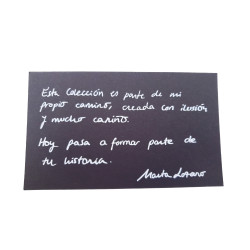 Esta colección es parte de mi
propio camino, creada con ilusión
y mucho cariño.
Hoy pasa a formar parte de
tu historia.
Marta Lozano